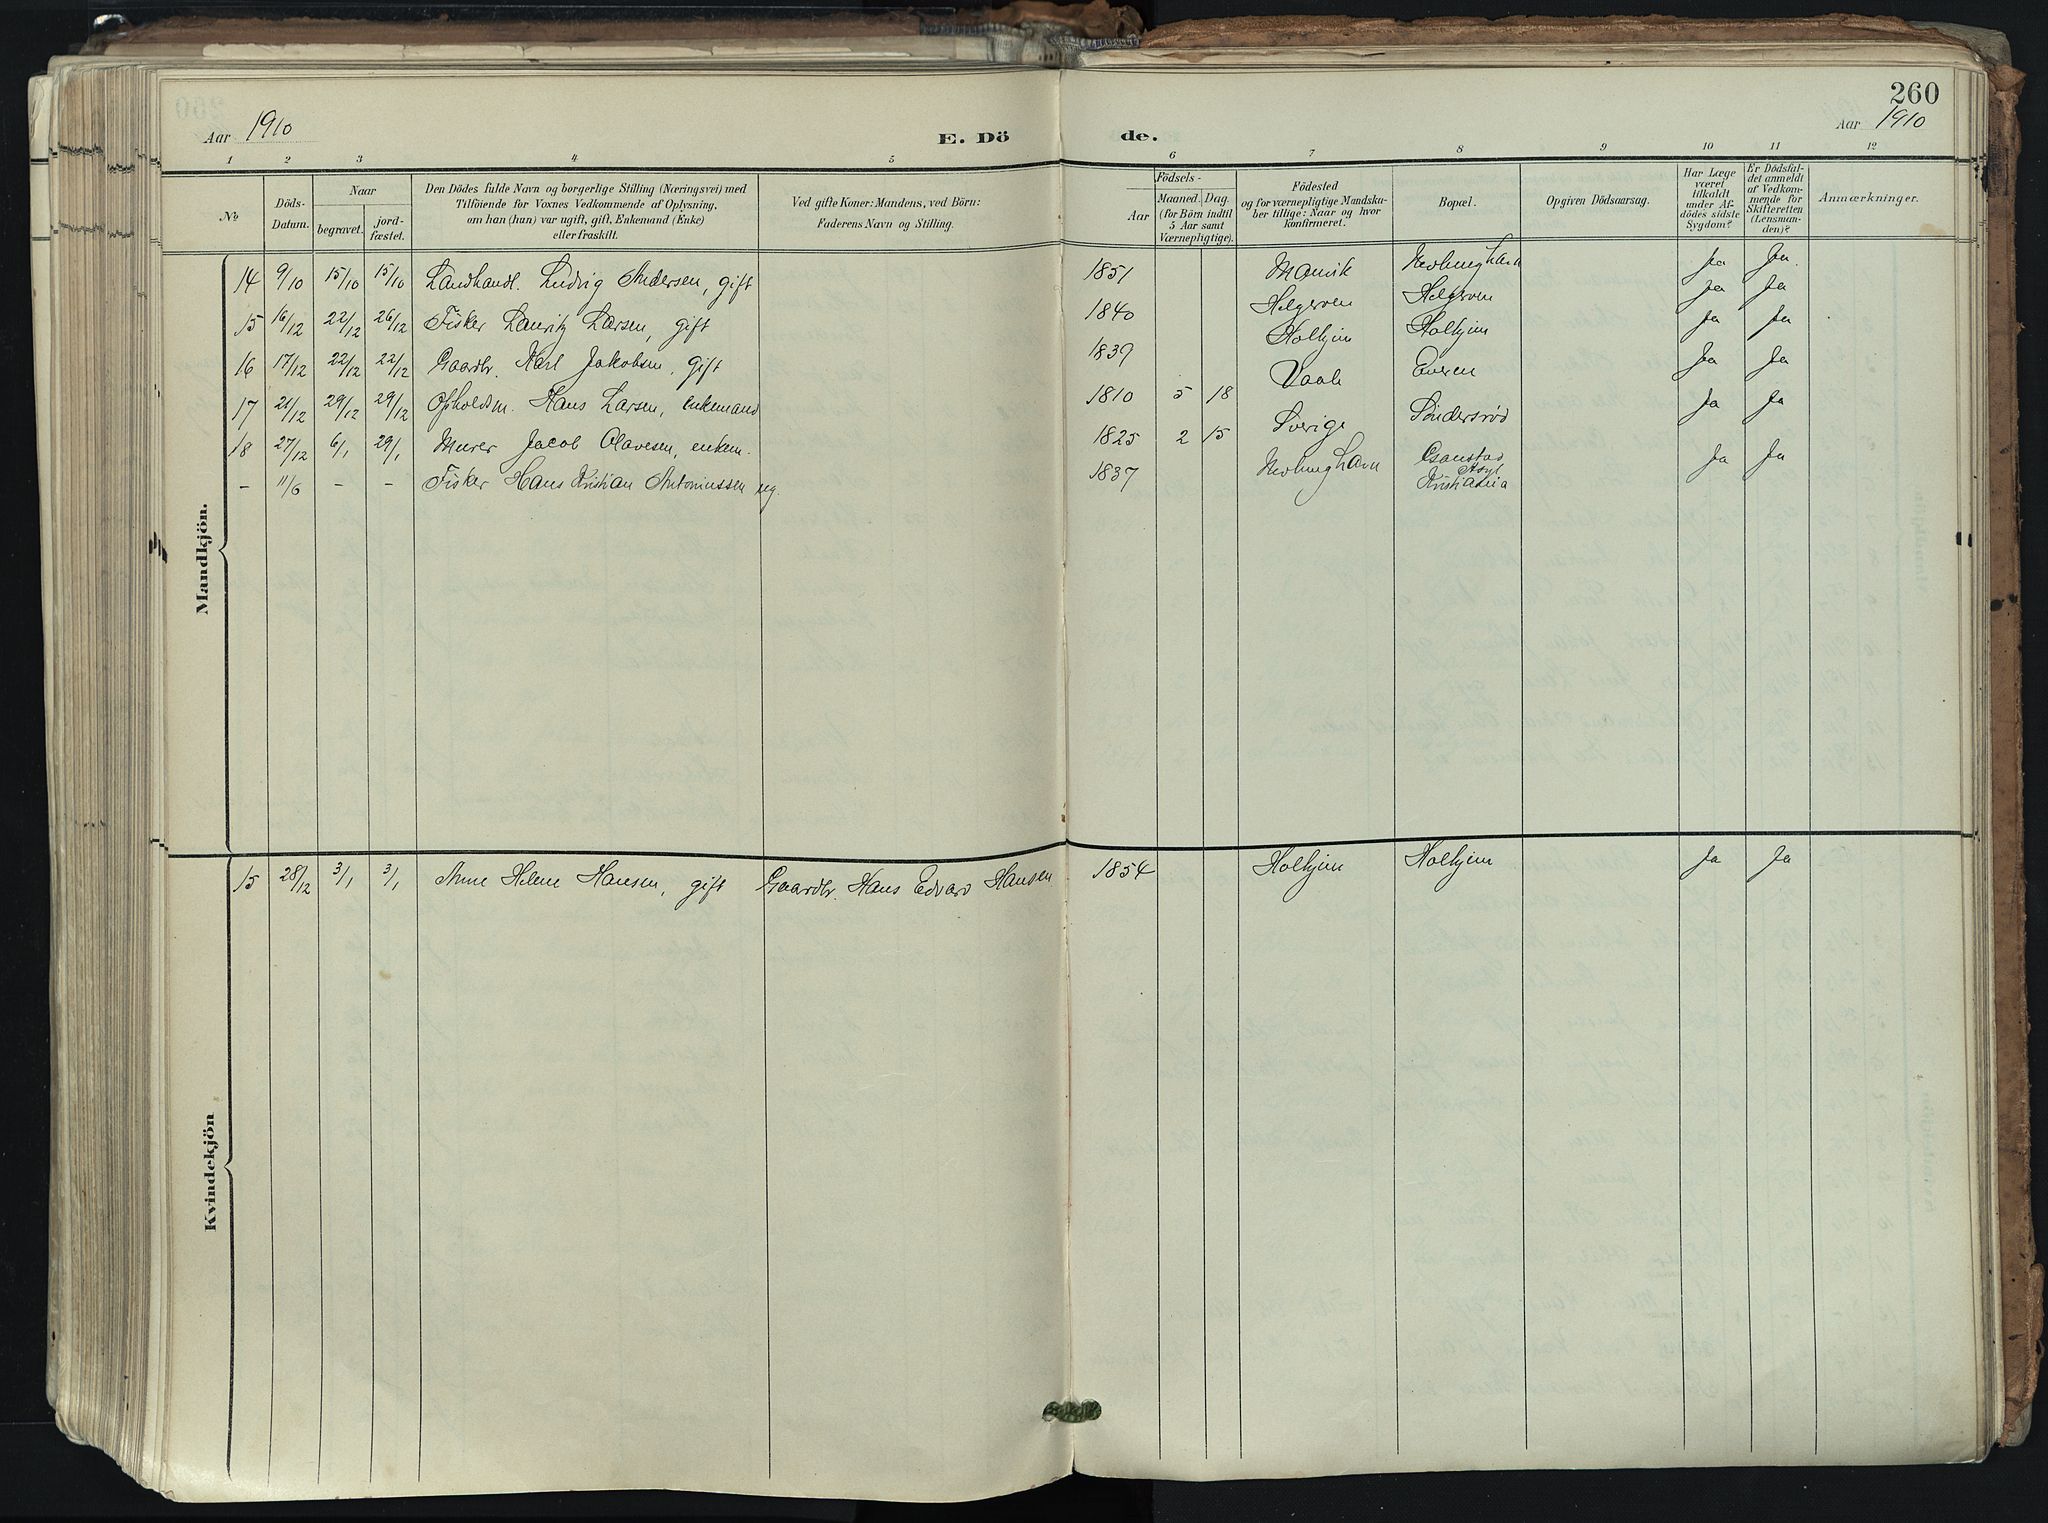 260
Aar 1910
E. Dö
de.
Aar 1910
1 2 3 4 5 6 7 8 9 10 11 12
No
Döds-Datum.
Naar
begravet.
jord-fæstet.
Den Dödes fulde Navn og borgerlige Stilling (Næringsvei) med
Tilföiende for Voxnes Vedkommende af Oplysning,
om han (hun) var ugift, gift, Enkemand (Enke)
eller fraskilt.
Ved gifte Koner: Mandens, ved Börn:
Faderens Navn og Stilling.
Födsels-
Aar
Maaned. Dag.
(for Börn indtil
5 Aar samt
Værnepligtige).
Födested
og for værnepligtige Mandska-
ber tillige: Naar og hvor
konfirmeret.
Bopæl.
Opgiven Dödsaarsag.
Har Læge
været
tilkaldt
under Af-
dödes sidste
Sygdom?
Er Dödsfal-
det anmeldt
af Vedkom-
mende for
Skifteretten
(Lensman-
den)?
Anmærkninger.
Mandkjön.
14 9/10 15/10 15/10 Landhandl. Ludvig Andersen, gift 1851 Manvik Nevlunghavn Ja Ja.
15 16/12 22/12 26/12 Fisker Lauritz Larsen, gift 1840 Helgeroen Helgeroen Ja Ja
16 17/12 22/12 22/12 Gaardbr. Karl Jakobsen, gift 1839 Holhjem Holhjem Ja Ja
17 21/12 29/12 29/12 Opholdsm. Hans Larsen, enkemand 1810 5 18 Vaale Ja Ja
18 27/12 6/1 29/1 Murer Jacob Olavesen, enkem. 1825 2 15 Sverige Söndersröd Ja Ja
- 11/6 - - Fisker Hans Kristian Antoniussen ug. 1837 Nevlunghavn Asyl Kristiania Ja Ja
Kvindekjön
15 28/12 3/1 3/1 Anne Helene Hansen, gift Gaardbr. Hans Edvard Hansen 1854 Holhjem Holhjem Ja Ja